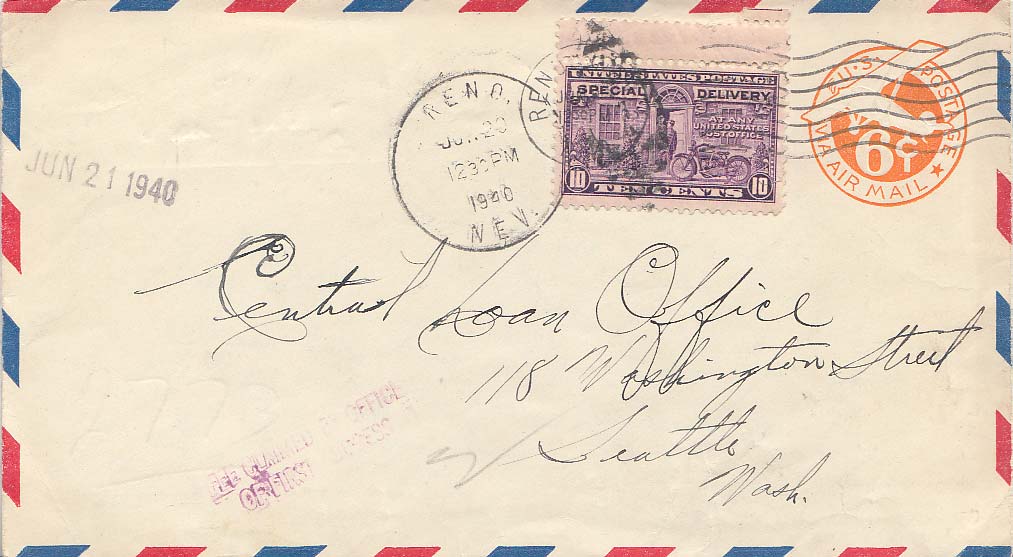 UNITED STATES POSTAGE
SPECIAL DELIVERY
AT ANY
UNITED STATES
POST OFFICE
10 TEN CENTS 10
U.S. POSTAGE
6¢
VIA AIR MAIL
RENO,
JUN 20
12 30 PM
1940
NEV.
REN
JUN 21 1940
Central Loan Office
118 Washington Street
Seattle
Wash.
FEE CLAIMED BY OFFICE
OF FIRST ADDRESS